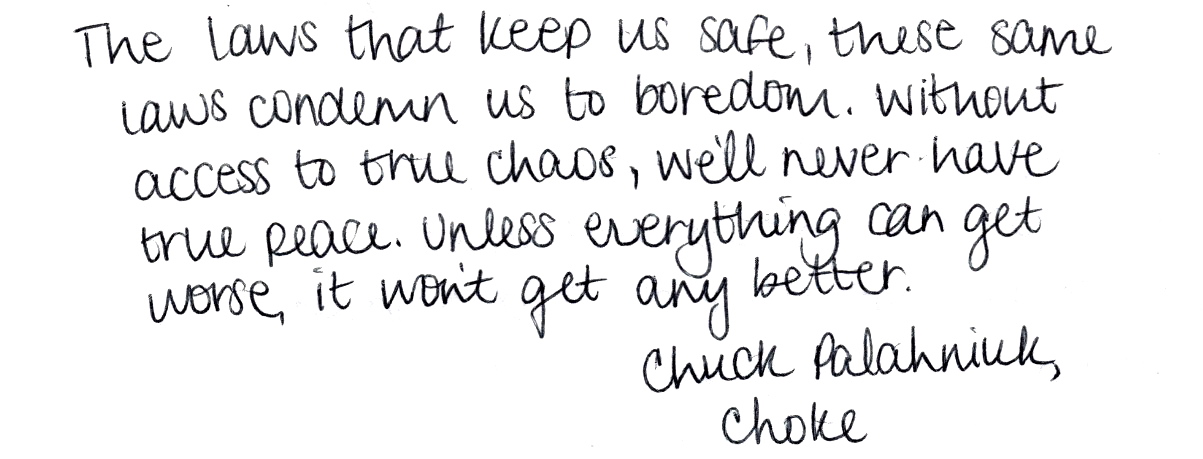 The laws that keep us safe, these same
laws condemn us to boredom. Without
access to true chaos, we'll never have
true peace. Unless everything can get
worse, it won't get any better.
Chuck Palahniuk,
Choke